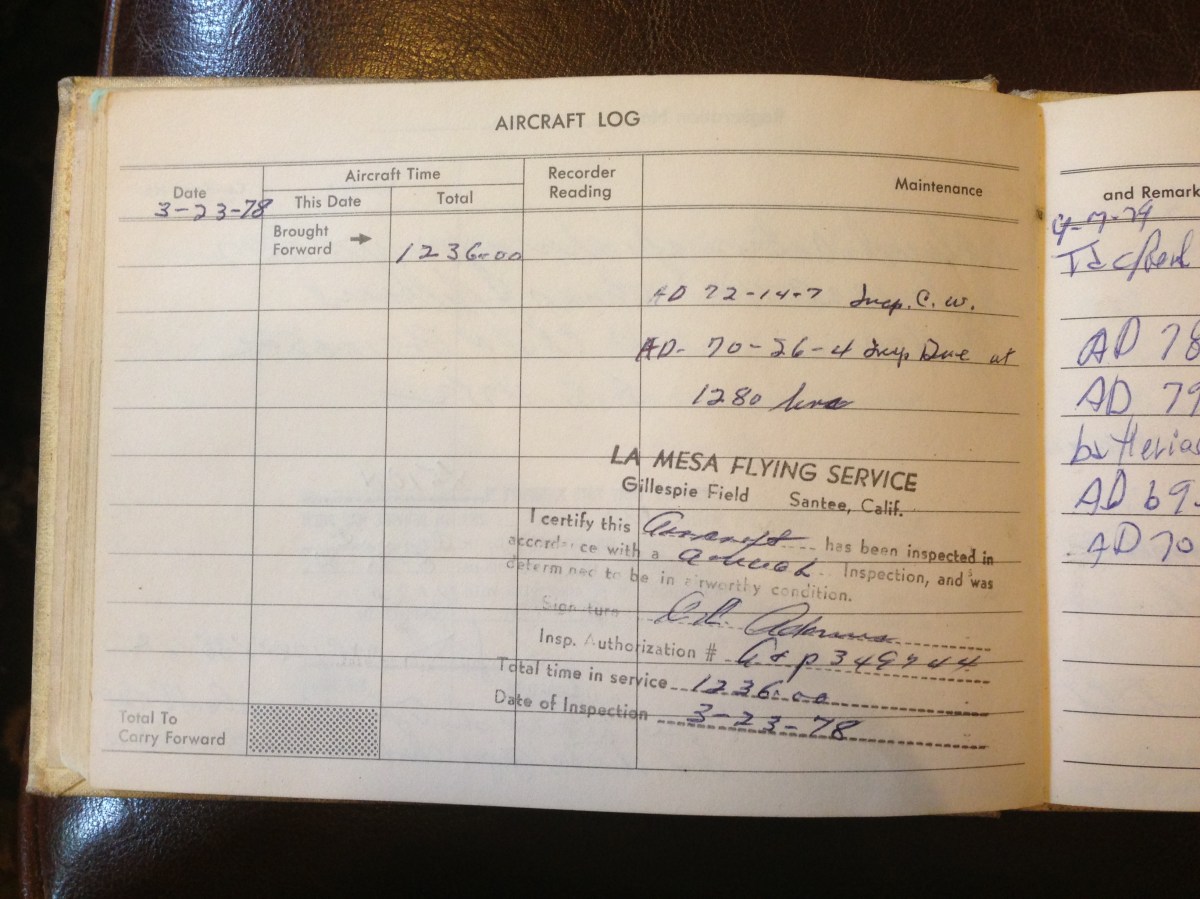 AIRCRAFT LOG
Date
Aircraft Time
Recorder Reading
Maintenance
This Date
Total
3-23-78
Brought Forward →
1236.00
AD 72-14-7 Insp. C.W.
AD- 70-26-4 Insp Due at
1280 hrs
LA MESA FLYING SERVICE
Gillespie Field Santee, Calif.
I certify this Aircraft has been inspected in
accordance with a annual Inspection, and was
determined to be in airworthy condition.
Signature Adams
Insp. Authorization # A&P 349744
Total time in service 1236.00
Date of Inspection 3-23-78
Total To
Carry Forward
and Remark
4-7-79
AD 78
AD 79
AD 69-
AD 70